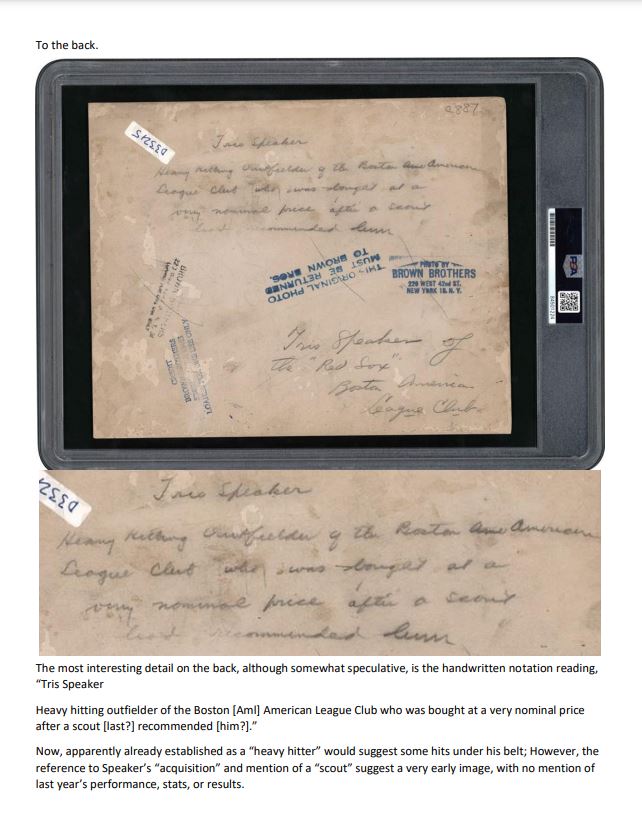 To the back.
D33245
Q887
Tris Speaker
Heavy hitting Outfielder of the Boston Ame American
League Club who was bought at a
very nominal price after a scout
had recommended him
THIS ORIGINAL PHOTO
MUST BE RETURNED
TO BROWN BROS.
PHOTO BY
BROWN BROTHERS
220 WEST 42nd ST.
NEW YORK 18, N. Y.
PSA
Tris Speaker of
the "Red Sox"
Boston America
League Club
D332
Tris Speaker
Heavy hitting Outfielder of the Boston Ame American
League Club who was bought at a
very nominal price after a scout
had recommended him
The most interesting detail on the back, although somewhat speculative, is the handwritten notation reading,
“Tris Speaker
Heavy hitting outfielder of the Boston [Aml] American League Club who was bought at a very nominal price
after a scout [last?] recommended [him?].”
Now, apparently already established as a “heavy hitter” would suggest some hits under his belt; However, the
reference to Speaker’s “acquisition” and mention of a “scout” suggest a very early image, with no mention of
last year’s performance, stats, or results.